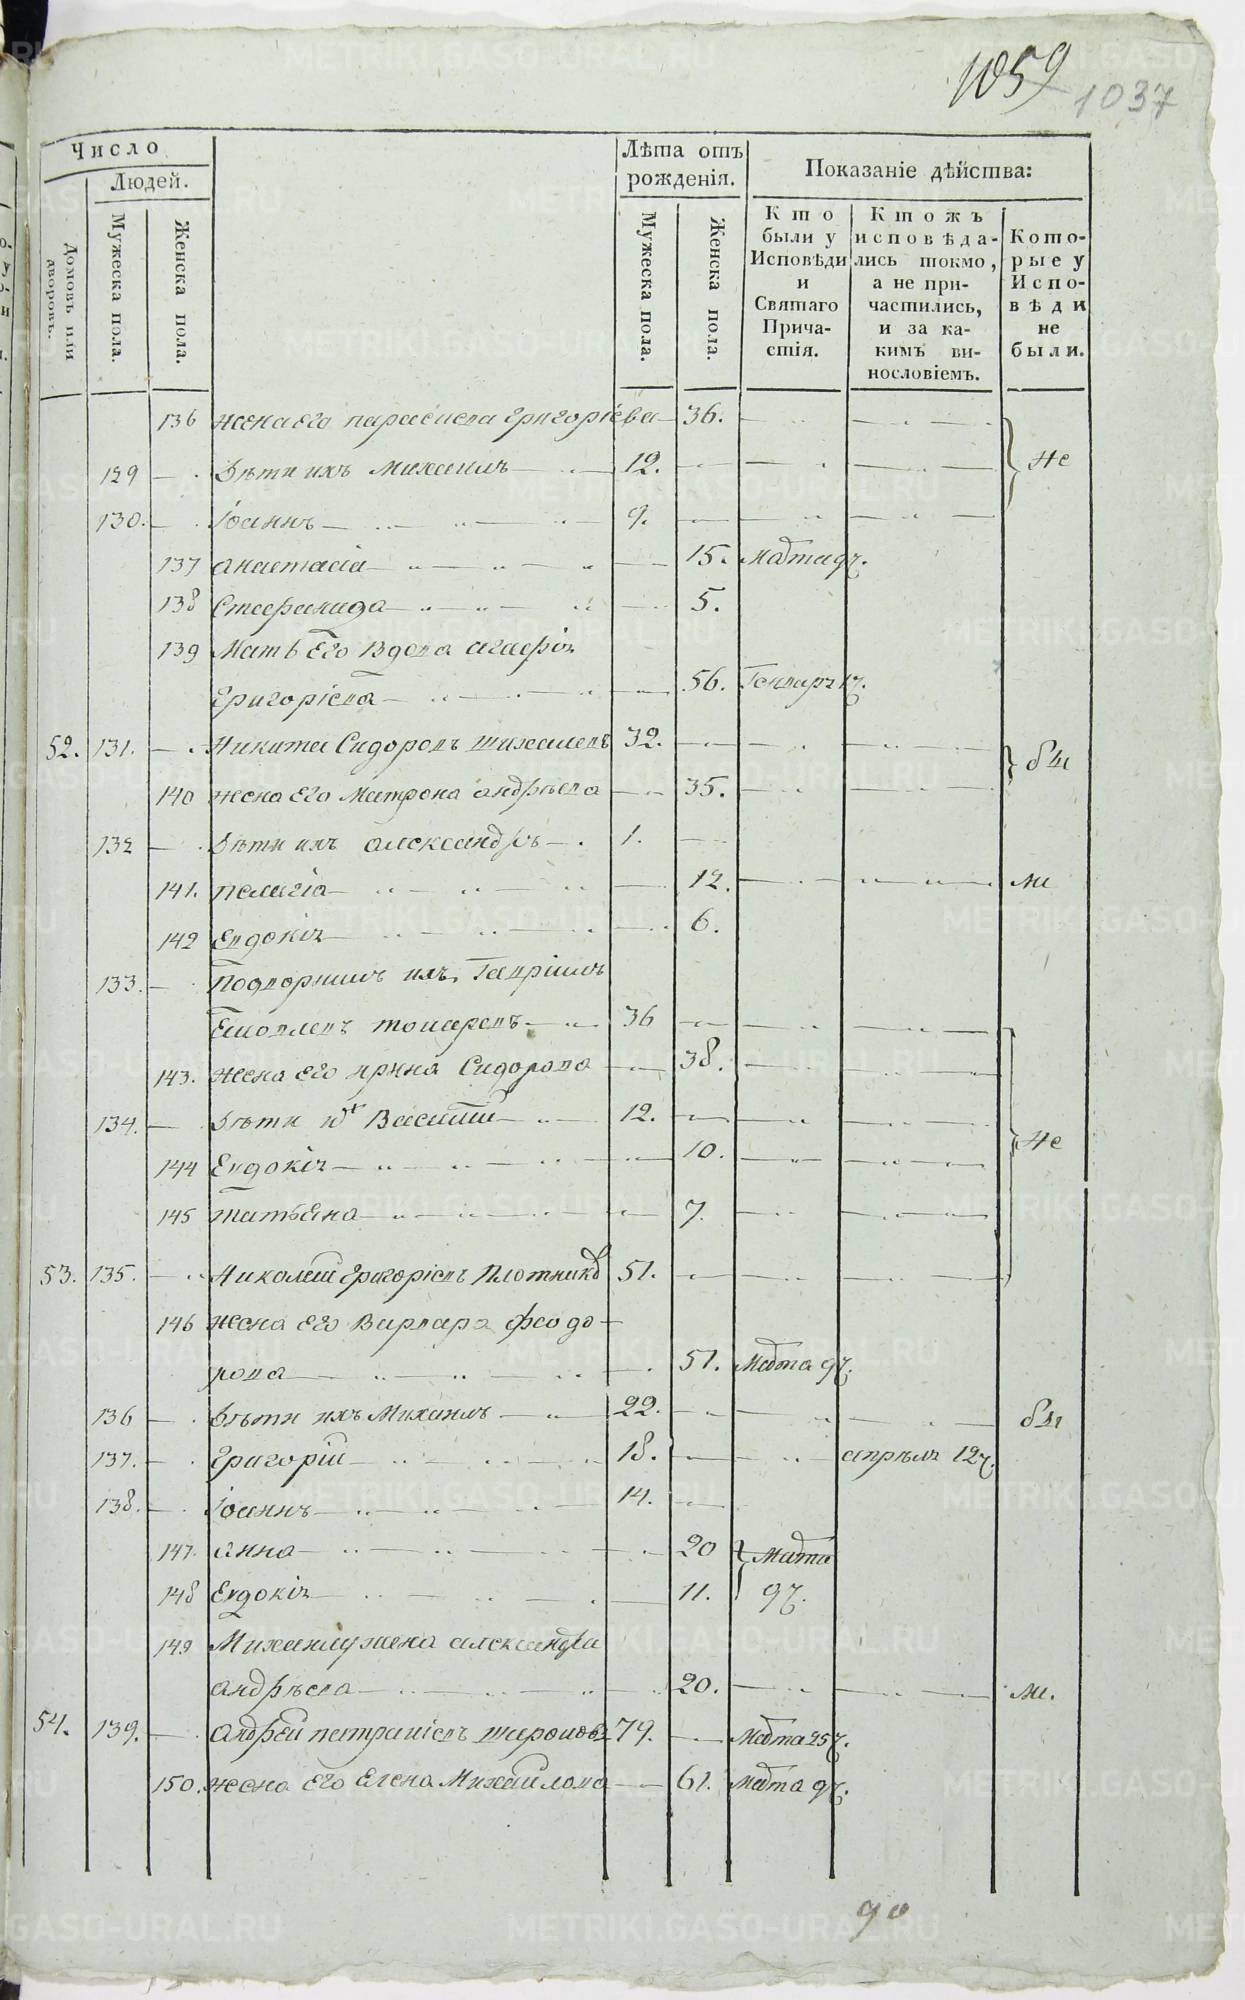 1059
1037
Число
Людей.
Домовъ или дворовъ.
Мужеска пола.
Женска пола.
Лѣта отъ рожденія.
Мужеска пола.
Женска пола.
Показаніе дѣйства:
Кто были у Исповѣди и Святаго Причастія.
Ктожъ исповѣдались токмо, а не причастились, и за какимъ винословіемъ.
Которые у Исповѣди не были.
136 жена его параскева григоріева 36.
129 Дѣти ихъ михаилъ 12. не
130. Іоаннъ 9.
137 анастасія 15. марта 9ч.
138 Стефанида 5.
139 Мать его вдова агафія
григоріева 56. генваря
52. 131. Никита Сидоровъ 32.
140 жена его Матрона андрѣева 35. бы
132 Дѣти ихъ александръ 1.
141. пелагія 12. ли
142 Евдокія 6.
133. Подворникъ ихъ Гавріилъ
токаревъ 36
143. жена его ирина Сидорова 38.
134. Дѣти ихъ Василій 12.
144 Евдокія 10. не
145 татьяна 7.
53. 135. Николай григоріевъ Плотниковъ 51.
146 жена его Варвара феодо-
рова 51. марта 9ч.
136 Дѣти ихъ Михаилъ 22. бы
137. григорій 18. апрѣля 12ч.
138. Іоаннъ 14.
147. анна 20 марта
148 Евдокія 11. 9ч.
149 Михаилу жена александра
андрѣева 20. ли.
54. 139. андрей 79. марта 25ч.
150. жена его Елена Михайлова 61. марта 9ч.
90
METRIKI.GASO-URAL.RU